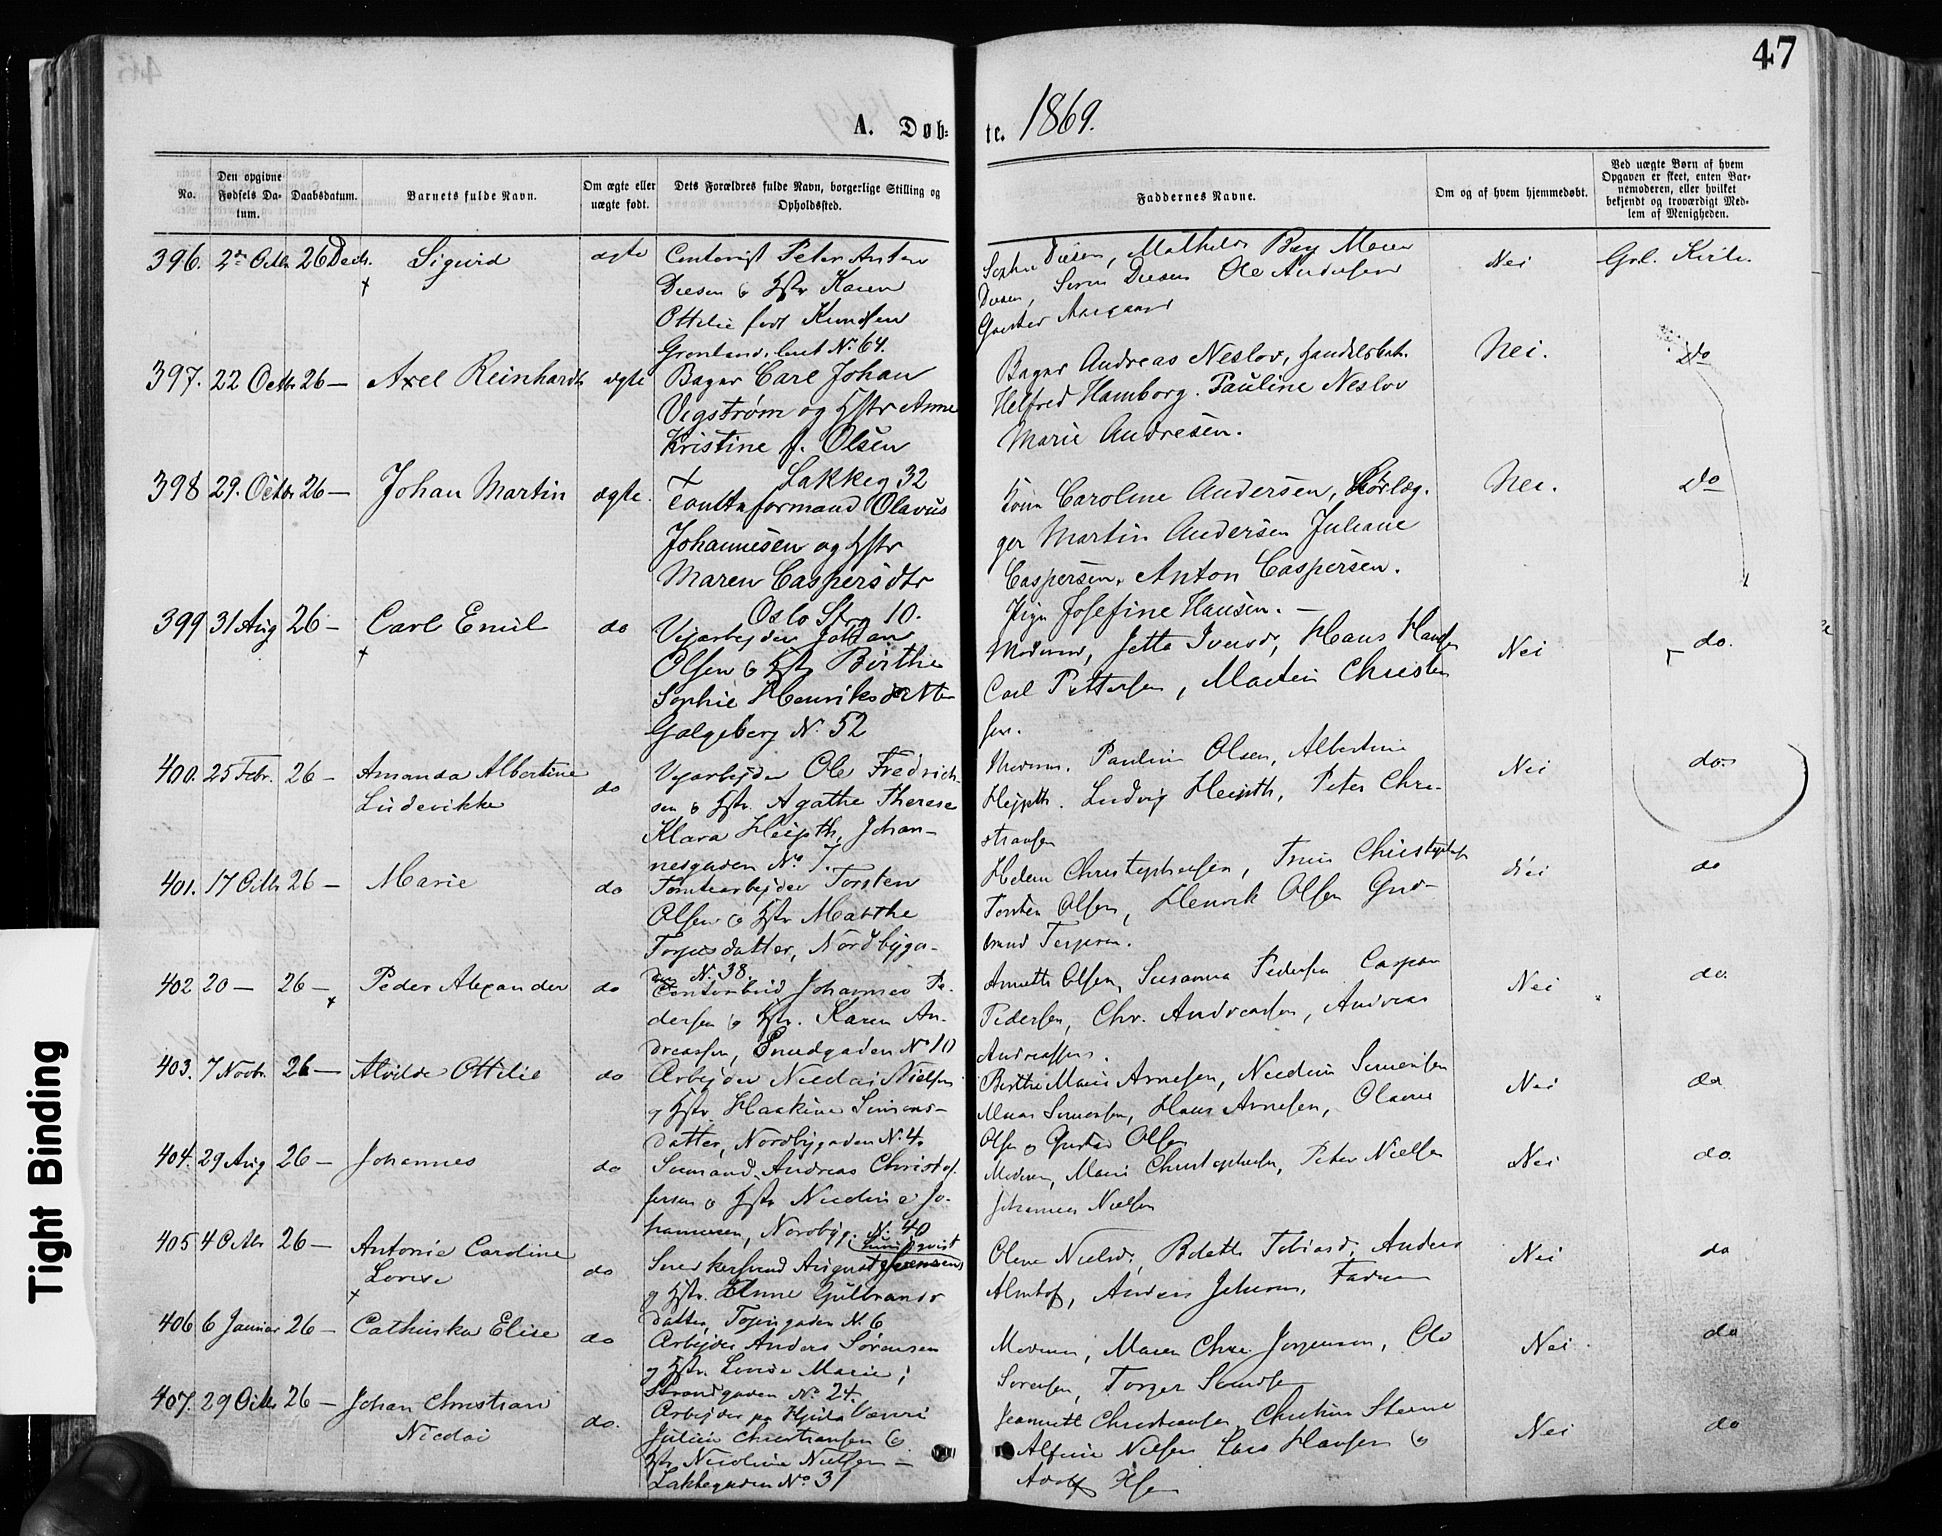 47
A. Døb-
te. 1869.
No.
Den opgivne Fødsels Da-
tum.
Daabsdatum.
Barnets fulde Navn.
Om ægte eller
uægte født.
Dets Forældres fulde Navn, borgerlige Stilling og
Opholdssted.
Faddernes Navne.
Om og af hvem hjemmedøbt.
Ved uægte Børn af hvem
Opgaven er skeet, enten Bar-
nemoderen, eller hvilket
bekjendt og troværdigt Med-
lem af Menigheden.
396. 2 Octbr 26 Decb. Sigurd ægte
Contorist Peter Anton
Diesen & Hstr Karen
Ottilie født Knudsen
Grønlandsleret No. 64.
Diesen, Mathilde
Diesen, Diesen Ole Andersen
Nei
397. 22 Octbr 26 — Axel Reinhardt ægte
Bager Carl Johan
Vigstrøm og Hstr Anne
Kristine f. Olsen
Lakkeg 32
Bager Andreas Neslov, Handelsbet.
Helfred Hamborg. Pauline Neslov
Marie Andresen.
Nei.
Do
398 29. Octbr 26 — Johan Martin ægte.
Tomteformand Olavus
Johannesen og Hstr
Maren Caspersdtr
Oslo Str. 10.
Kone Caroline Andersen, Rørlæg-
ger Martin Andersen Juliane
Caspersen, Anton Caspersen.
Pige Josefine Hansen. —
Nei.
Do
399 31 Aug 26 — Carl Emil do
Veiarbejder Johan
Olsen & Hstr Birthe
Sophie Henriksdatter
Galgeberg N. 52
Moderen, Jetta Iversdr, Hans Hansen
Carl Pettersen, Martin Christen
sen.
Nei
do.
400. 25 Febr. 26 — Amanda Albertine
Ludevikke
do
Veiarbejder Ole Fredrich-
sen & Hstr. Agathe Therese
Klara Heipth, Johan-
nesgaden No 7.
Moderen, Pauline Olsen, Albertine
Hejpth. Ludvig Heipth, Peter Chri-
stiansen
Nei
do.
401. 17 Octbr 26 — Marie do
Tomtearbejder Torsten
Olsen & Hstr Marthe
Torgersdatter, Nordbyga-
den N. 38.
Helene Christophersen, Christophersen
Torsten Olsen, Henrik Olsen Gud-
brand Torgersen.
Nei
do
402 20 — 26 — Peder Alexander do
Contorbud Johannes Pe-
dersen & Hstr. Karen An-
dreassen, Smedgaden No 10
Annette Olsen, Susanna Pedersen Caspar
Pedersen, Chr. Andreasen, Andreas
Andreassen.
Nei
do.
403. 7 Novbr. 26 — Alvilde Ottilie do
Arbejder Nicolai Nielsen
og Hstr. Haakine Simons-
datter, Nordbygaden N. 4.
Berthe Marie Arnesen, Simensen
Simensen, Hans Arnesen, Olaves
Olsen & Gustav Olsen
Nei
do
404. 29 Aug 26 — Johannes do
Sømand Andreas Christof-
fersen & Hstr Nicoline Jo-
hannesen, Nordbyg. N. 40
Moderen, Marie Christophersen, Peter Nielsen
Johannes Nielsen
Nei
do.
405 4 Octbr 26 — Antonie Caroline
Lovise
do
Snedkersvend August
og Hstr. Anne Gulbrands-
datter, N. 6
Olene Nielsdr, Tobiasd, Anders
Almhof, Anders Johnsen, Faderen
Nei
do
406 6 Januar 26 — Cathinka Elise do
Arbejder Anders Sørensen
og Hstr. Lovise Marie,
Strandgaden No 24.
Moderen, Maren Chr. Jørgensen, Ole
Sørensen, Torger
Nei
do
407. 29 Octbr 26 — Johan Christian
Nicolai
do.
Arbejder
Julius Christiansen &
Hstr Nicoline Nielsen —
Lakkegaden No 31
Jeannette Christiansen, Christine
Nielsen Lars Hansen &
Adolf
Nei
do
Tight Binding